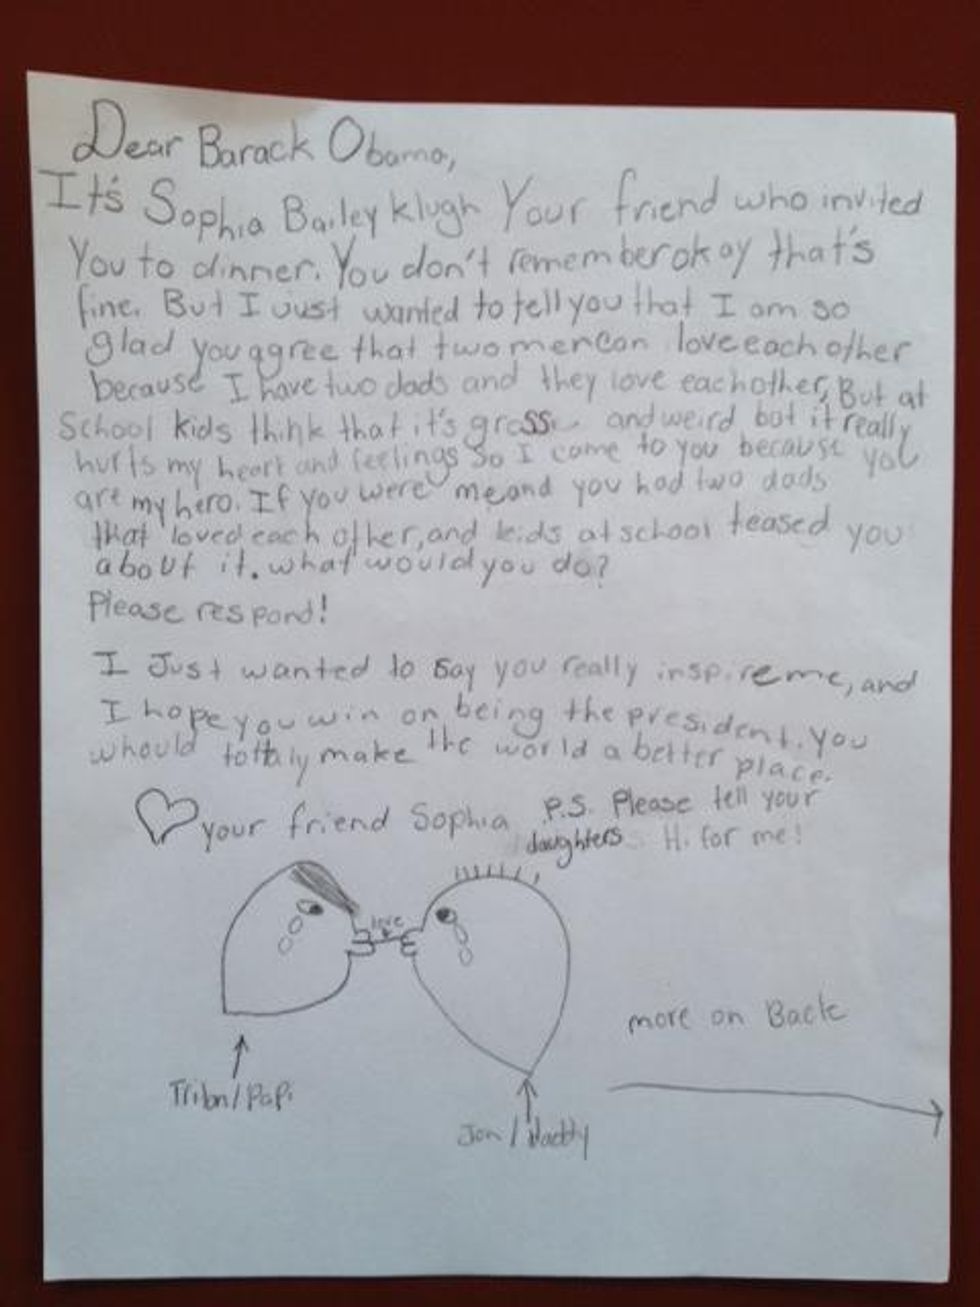 Dear Barack Obama,
It's Sophia Bailey klugh Your friend who invited
You to dinner. You don't remember okay that's
fine. But I Just wanted to tell you that I am so
glad you agree that two men can love each other
because I have two dads and they love each other. But at
School kids think that it's gross and weird but it really
hurts my heart and feelings So I come to you because you
are my hero. If you were me and you had two dads
that loved each other, and kids at school teased you
about it. what would you do?
Please respond!
I Just wanted to say you really inspire me, and
I hope you win on being the president. You
whould tottaly make the world a better place.
♡ your friend Sophia
P.S. Please tell your
daughters Hi for me!
love
more on Back
/ Papi
Jon / Daddy